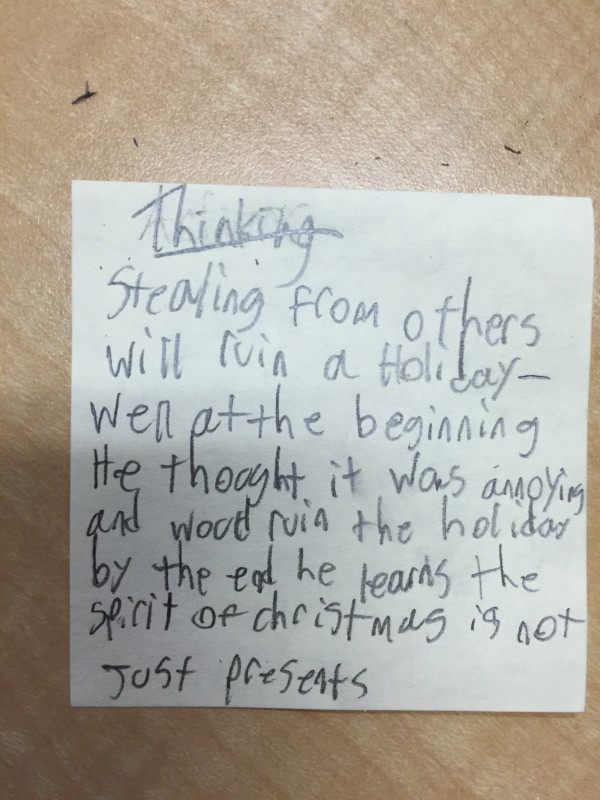 Thinking
Stealing from others
will ruin a Holiday—
Well at the beginning
He thooght it was annoying
and wood ruin the holiday
by the end he learns the
spirit of christmas is not
Just presents